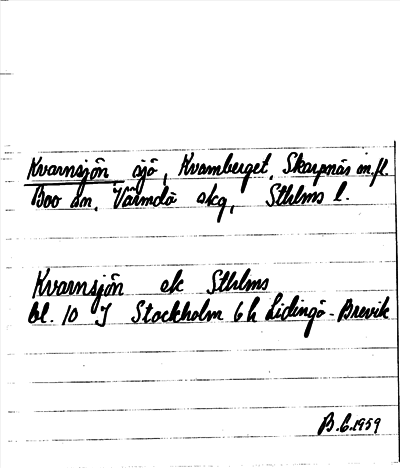 Kvarnsjön, sjö, Kvarnberget, Skarpnäs m.fl.
Boo sn, Värmdö skg, Sthlms l.
Kvarnsjön ek Sthlms
bl. 10 J Stockholm 6 h Lidingö-Brevik
B.G. 1959